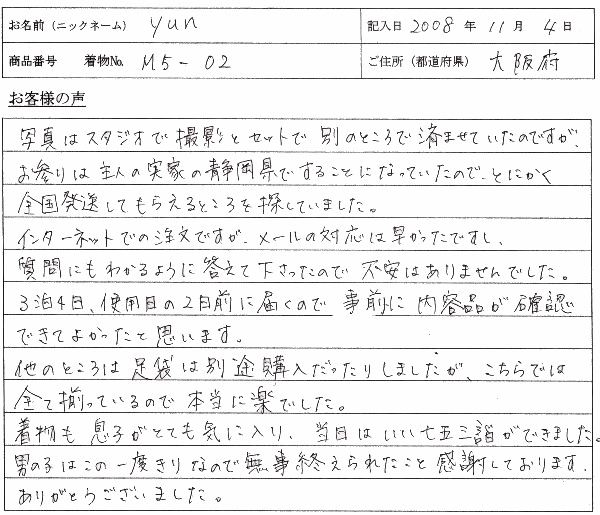 お名前（ニックネーム） yun 記入日 2008 年 11 月 4 日
商品番号 着物No. M5-02 ご住所（都道府県） 大阪府
お客様の声
写真はスタジオで撮影とセットで別のところで済ませていたのですが、
お参りは主人の実家の静岡県ですることになっていたので、とにかく
全国発送してもらえるところを探していました。
インターネットでの注文ですが、メールの対応は早かったですし、
質問にもわかるように答えて下さったので不安はありませんでした。
3泊4日、使用日の2日前に届くので事前に内容品が確認
できてよかったと思います。
他のところは足袋は別途購入だったりしましたが、こちらでは
全て揃っているので本当に楽でした。
着物も息子がとても気に入り、当日はいい七五三詣ができました。
男の子はこの一度きりなので無事終えられたこと感謝しております。
ありがとうございました。